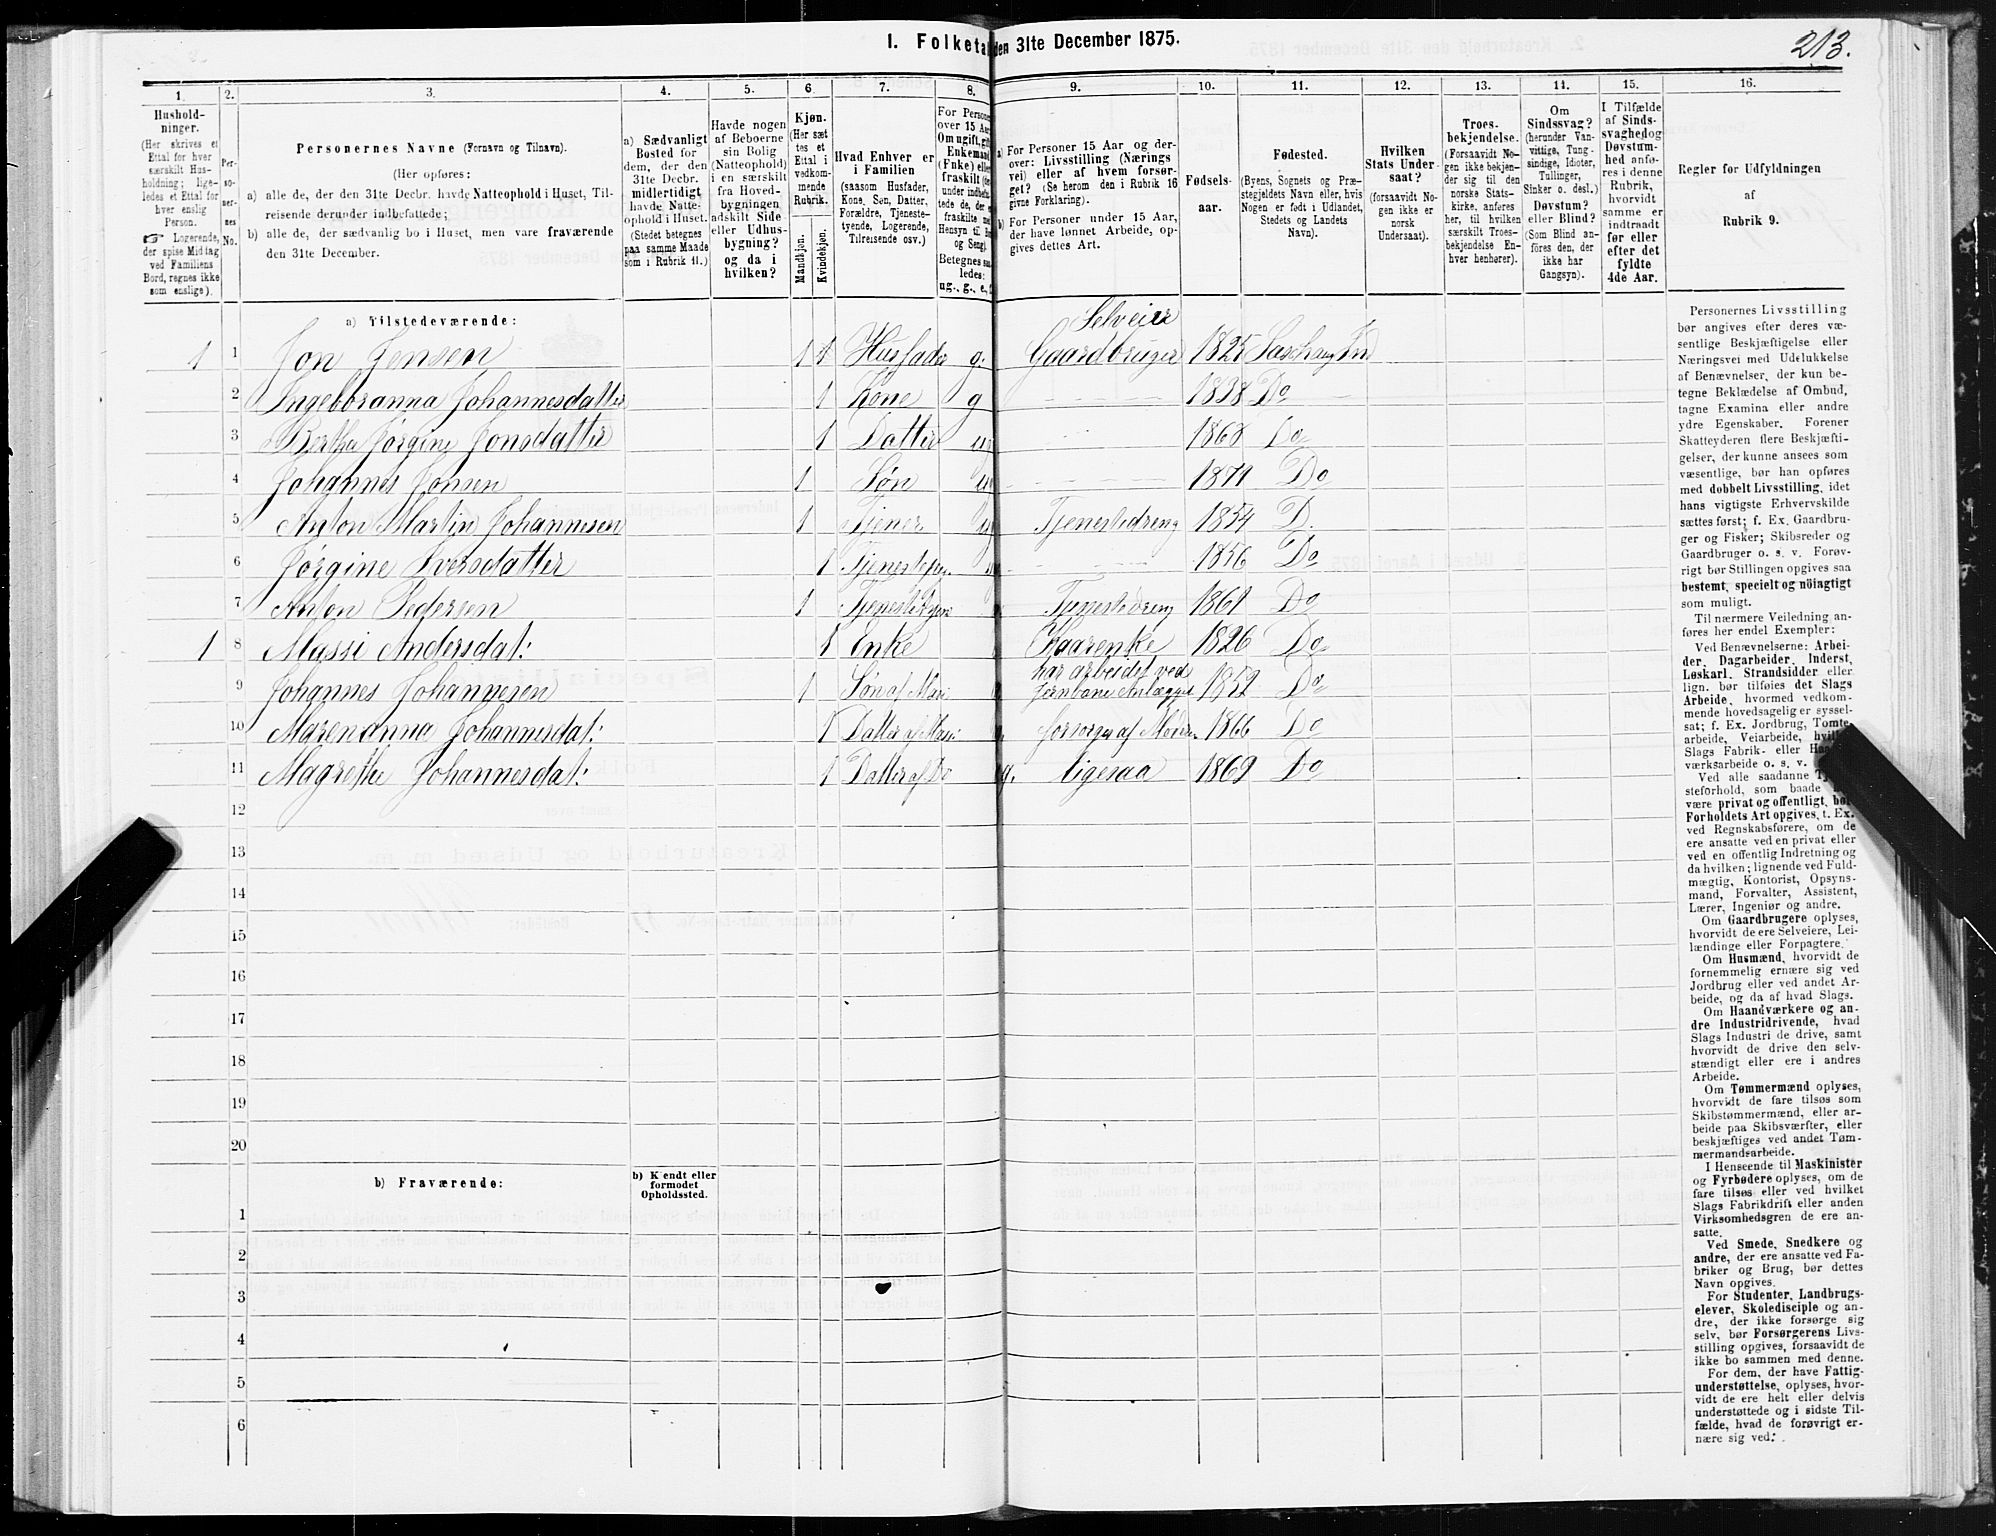 I. Folketal den 31te December 1875.
213.
1. 2. 3. 4. 5. 6. 7. 8. 9. 10. 11. 12. 13. 14. 15. 16.
Hushold-
ninger.
(Her skrives et
Ettal for hver
særskilt Hus-
holdning; lige-
ledes et Ettal for
hver enslig
Person.
☞ Logerende,
der spise Midtag
ved Familiens
Bord, regnes ikke
som enslige).
Per-
so-
ner-
nes
No.
Personernes Navne (Fornavn og Tilnavn).
(Her opføres:
a) alle de, der den 31te Decbr. havde Natteophold i Huset, Til-
reisende derunder indbefattede;
b) alle de, der sædvanlig bo i Huset, men vare fraværende
den 31te December.
a) Sædvanligt
Bosted for
dem, der den
31te Decbr.
midlertidigt
havde Natte-
ophold i Huset.
(Stedet betegnes
paa samme Maade
som i Rubrik 11.)
Havde nogen
af Beboerne
sin Bolig
(Natteophold)
i en særskilt
fra Hoved-
bygningen
adskilt Side-
eller Udhus-
bygning?
og da i
hvilken?
Kjøn.
(Her sæt
tes et
Ettal i
vedkom-
mende
Rubrik.
Mandkjøn.
Kvindekjøn.
Hvad Enhver er
i Familien
(saasom Husfader,
Kone, Søn, Datter,
Forældre, Tjeneste-
tyende, Logerende,
Tilreisende osv.)
For Personer
over 15 Aar
Om ugift, gift
Enkemand
(Enke) eller
fraskilt
under indbefat-
tede de, der e
fraskilte
Hensyn til B
og Seng)
Betegnes saa-
ledes:
ug., g., e.,
a) For Personer 15 Aar og der-
over: Livsstilling (Nærings
vei) eller af hvem forsør-
get? (Se herom den i Rubrik 16
givne Forklaring).
b) For Personer under 15 Aar,
der have lønnet Arbeide, op-
gives dettes Art.
Fødsels-
aar.
Fødested.
(Byens, Sognets og Præ-
stegjeldets Navn eller, hvis
Nogen er født i Udlandet,
Stedets og Landets
Navn).
Hvilken
Stats Under-
saat?
(forsaavidt No-
gen ikke er
norsk
Undersaat).
Troes-
bekjendelse.
(Forsaavidt No-
gen ikke bekjen-
der sig til den
norske Stats-
kirke, anføres
her, til hvilken
særskilt Troes-
bekjendelse En-
hver henhører).
Om
Sindssvag?
(herunder Van-
vittige, Tung-
sindige, Idioter,
Tullinger,
Sinker o. desl.)
Døvstum?
eller Blind?
(Som Blind an-
føres den, der
ikke har
Gangsyn).
I Tilfælde
af Sinds-
svaghed og
Døvstum-
het anfø-
res i denne
Rubrik,
hvorvidt
samme er
indtraadt
før eller
efter det
fyldte
4de Aar.
Regler for Udfyldningen
af
Rubrik 9.
a) Tilstedeværende:
Selveier
1 1 Jon Jensen 1 1 Husfader g. Gaardbruger 1825
2 Ingeboranna Johannesdatter 1 Kone g 1838 Do
3 Berthe Jørgine Jonsdatter 1 Datter ug 1868 Do
4 Johannes Jonsen 1 Søn ug 1871 Do
5 Anton Martin Johannesen 1 Tjener ug Tjenestedreng 1854 D.
6 Jørgine Iversdatter 1 1856 Do
7 Anton Pedersen 1 Tjenestedreng 1861 Do
1 8 Massi Andersdat: 1 Enke Kaarenke 1826 Do
har arbeidet ved
9 Johannes Johannesen 1 Søn af Jernbane Anlægget 1852 Do
10 Marenanna Johannesdat: 1 Datter af forsørges af Moder 1866 Do
11 Magrethe Johannesdat: 1 Datter af Do g. ligesaa 1869 Do
12
13
14
15
16
17
18
19
20
b) Fraværende:
b) Kjendt eller
formodet
Opholdssted.
1
2
3
4
5
6
Personernes Livsstilling
bør angives efter deres væ-
sentlige Beskjæftigelse eller
Næringsvei med Udelukkelse
af Benævnelser, der kun be-
tegne Beklædelse af Ombud,
tagne Examina eller andre
ydre Egenskaber. Forener
Skatteyderen flere Beskjæfti-
gelser, der kunne ansees som
væsentlige, bør han opføres
med dobbelt Livsstilling, idet
hans vigtigste Erhvervskilde
sættes først; f. Ex. Gaardbru-
ger og Fisker; Skibsreder og
Gaardbruger o. s. v. Forøv-
rigt bør Stillingen opgives saa
bestemt, specielt og nöiagtigt
som muligt.
Til nærmere Veiledning an-
føres her endel Exempler:
Ved Benævnelserne: Arbei-
der, Dagarbeider, Inderst,
Løskarl, Strandsidder eller
lign. bør tilføies det Slags
Arbeide, hvormed vedkom-
mende hovedsagelig er syssel-
sat; f. Ex. Jordbrug, Tomte-
arbeide, Veiarbeide,
Slags Fabrik- eller
værksarbeide o. s. v.
Ved alle saadanne
steforhold, som baade
være privat og offentligt, bør
Forholdets Art opgives, t. Ex.
ved Regnskabsførere, om de
ere ansatte ved en privat eller
ved en offentlig Indretning og
da hvilken; lignende ved Fuld-
mægtig, Kontorist, Opsyns-
mand, Forvalter, Assistent,
Lærer, Ingeniør og andre.
Om Gaardbrugere oplyses,
hvorvidt de ere Selveiere, Lei-
lændinge eller Forpagtere.
Om Husmænd, hvorvidt de
fornemmelig ernære sig ved
Jordbrug eller ved andet Ar-
beide, og da af hvad Slags.
Om Haandværkere og an-
dre Industridrivende, hvad
Slags Industri de drive, samt
hvorvidt de drive den selv-
stændigt eller ere i andres
Arbeide.
Om Tømmermænd oplyses,
hvorvidt de fare tilsøs som
Skibstømmermænd, eller ar-
beide paa Skibsværfter, eller
beskjæftiges ved andet Tøm-
mermandsarbeide.
I Henseende til Maskinister
og Fyrbødere oplyses, om de
fare tilsøs eller ved hvilket
Slags Fabrikdrift eller anden
Virksomhedsgren de ere an-
satte.
Ved Smede, Snedkere og
andre, der ere ansatte ved Fa-
briker og Brug, bør dettes
Navn opgives.
For Studenter, Landbrugs-
elever, Skoledisciple og an-
dre, der ikke forsørge sig
selv, bør Forsørgerens Livs-
stilling opgives, forsaavidt de
ikke bo sammen med denne.
For dem, der have Fattig-
understøttelse, oplyses, hvor-
vidt de ere helt eller delvis
understøttede og i sidste Til-
fælde, hvad de forøvrigt er-
nære sig ved.